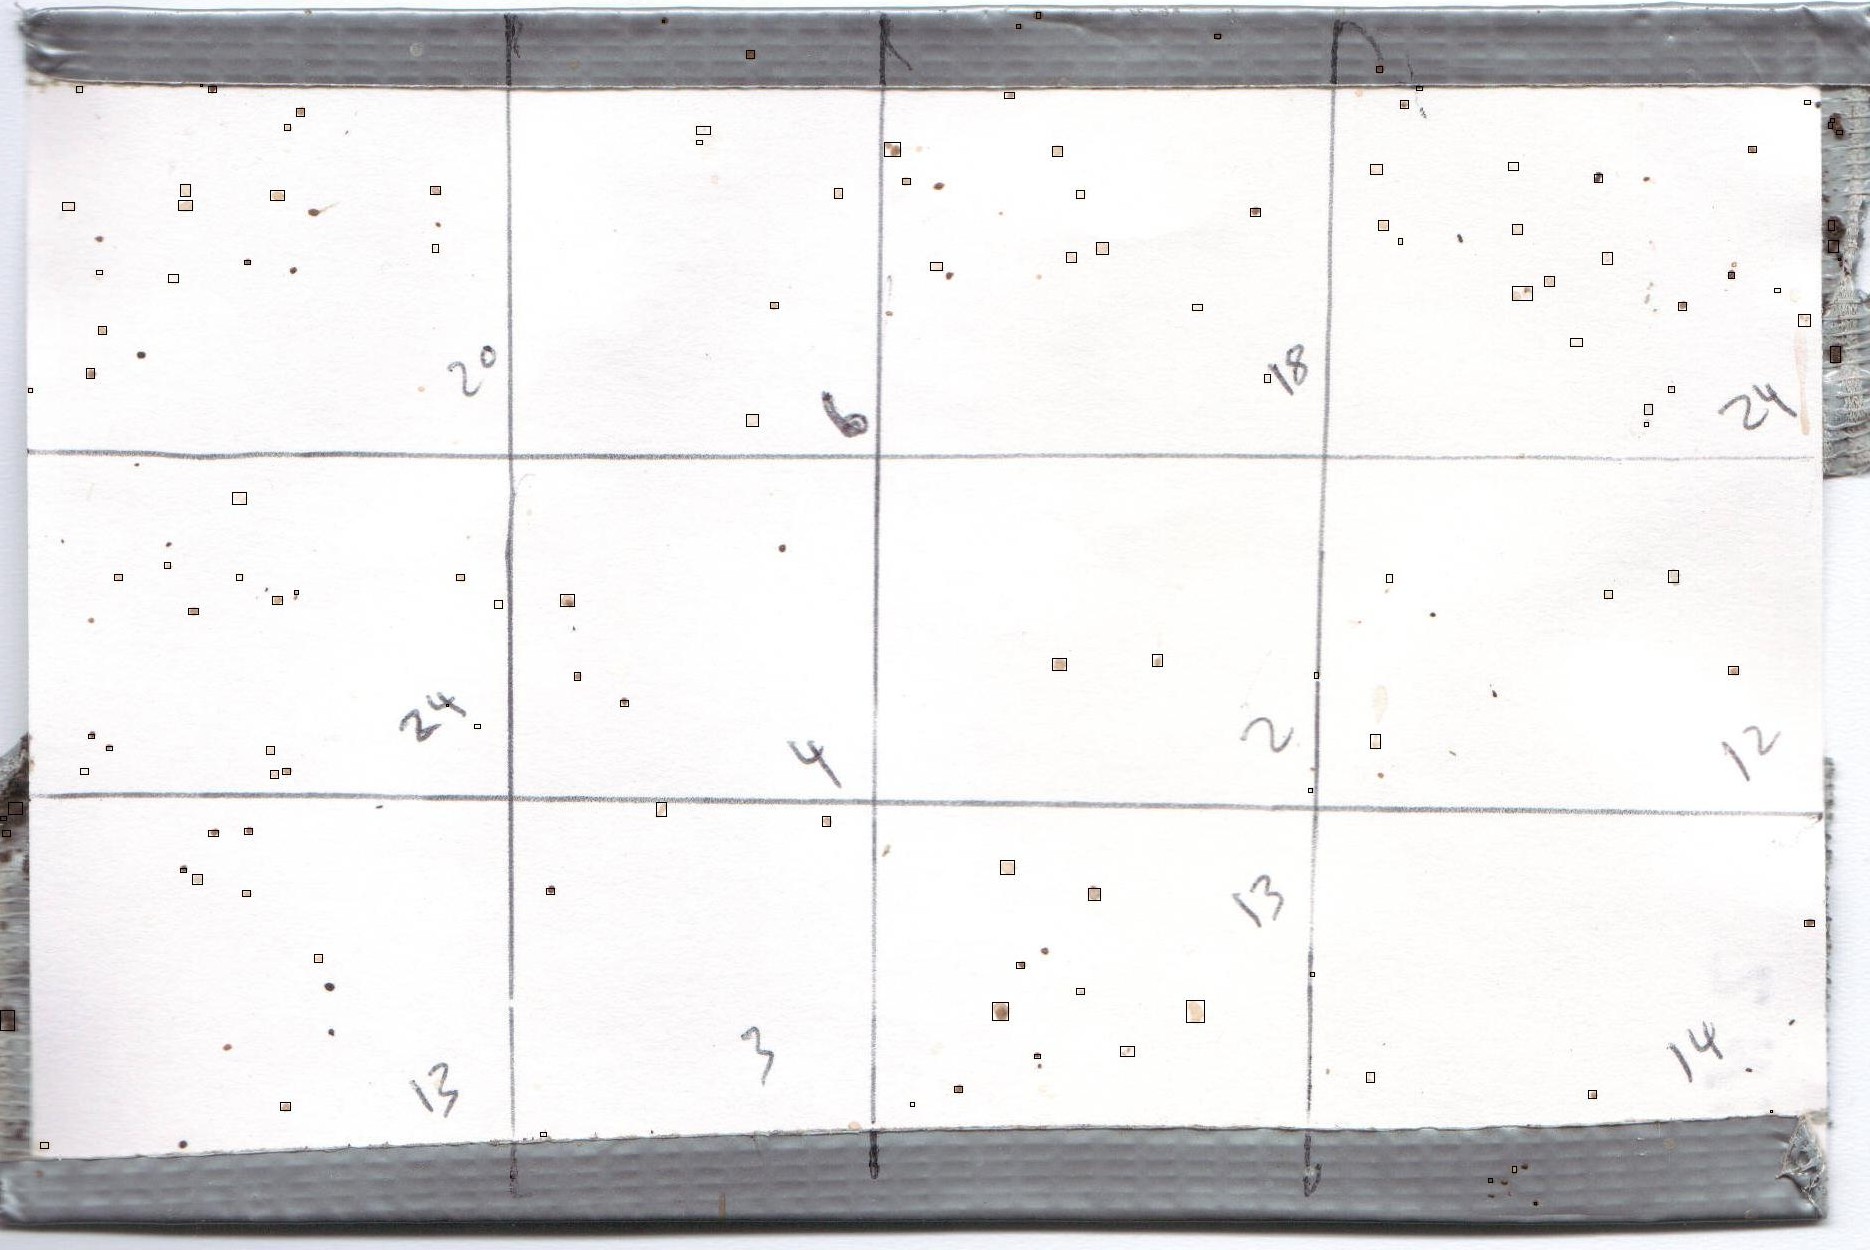 20 6 18 24
24 4 2 12
13 3 13 14